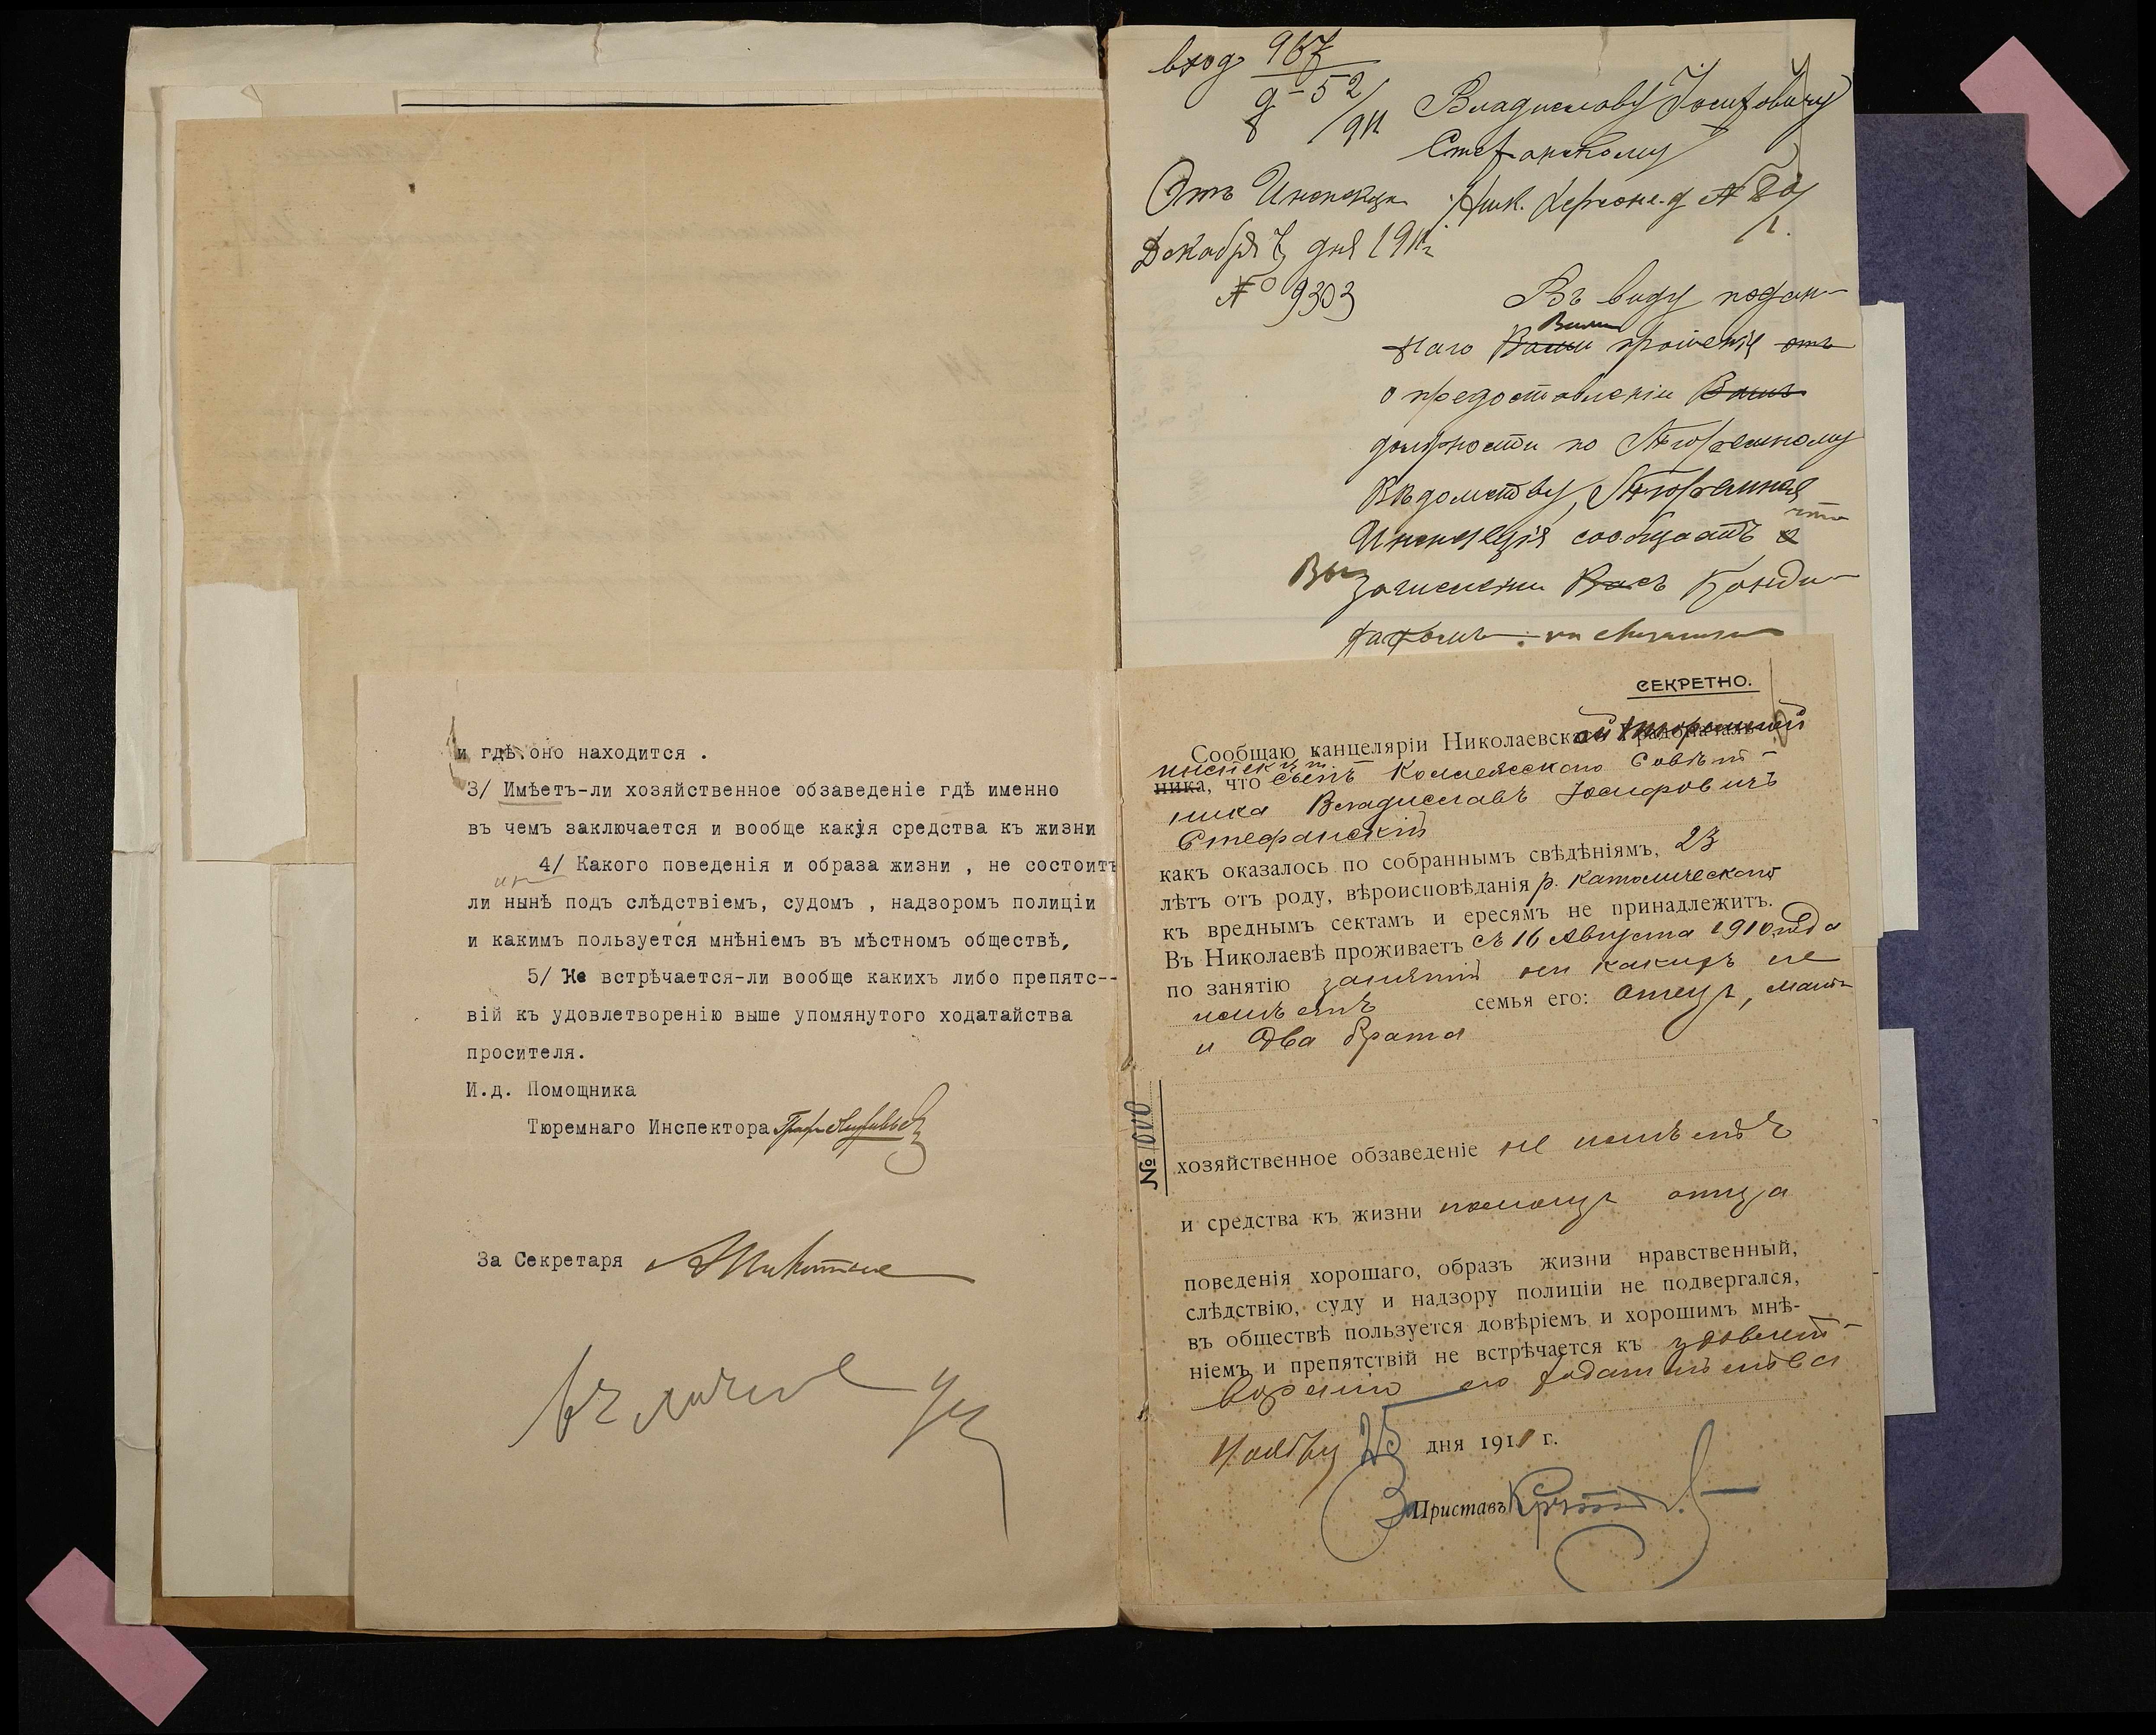 и гдѣ оно находится .
3/ Имѣетъ-ли хозяйственное обзаведеніе гдѣ именно
въ чемъ заключается и вообще какія средства къ жизни
4/ Какого поведенія и образа жизни , не состоитъ
ли нынѣ подъ слѣдствіемъ, судомъ , надзоромъ полиціи
и какимъ пользуется мнѣніемъ въ мѣстномъ обществѣ,
5/ Не встрѣчается-ли вообще какихъ либо препятс--
вій къ удовлетворенію выше упомянутого ходатайства
просителя.
И.д. Помощника
Тюремнаго Инспектора
За Секретаря
вход 967
Владиславу Іосифовичу
Стефанскому
Отъ Инспекціи
Декабря 7 дня 1911 г.
№ 9303
Въ виду подан-
наго Вами прошенія отъ
о предоставленіи Вамъ
должности по Тюремному
Вѣдомству, Тюремная
что
Инспекція сообщаетъ о
Вы зачислены Васъ Канди-
датомъ
СЕКРЕТНО.
Сообщаю канцеляріи Николаевской Тюремной
инспекц
ника, что сынъ Коллежскаго Совѣт-
ника Владиславъ Іосифовичъ
Стефанскій
какъ оказалось по собраннымъ свѣдѣніямъ, 23
лѣтъ отъ роду, вѣроисповѣданія р. католическаго
къ вреднымъ сектамъ и ересямъ не принадлежитъ.
Въ Николаевѣ проживаетъ съ 16 Августа 1910 года
по занятію занятій ни какихъ не
имѣетъ семья его: отецъ, мать
и два брата
№ 1000
хозяйственное обзаведеніе не имѣетъ
и средства къ жизни помощь отца
поведенія хорошаго, образъ жизни нравственный,
слѣдствію, суду и надзору полиціи не подвергался,
въ обществѣ пользуется довѣріемъ и хорошимъ мнѣ-
ніемъ и препятствій не встрѣчается къ удовлет-
воренію его ходатайства
Ноября 25 дня 1911 г.
За Приставъ